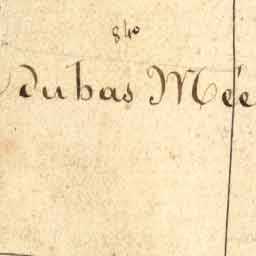 840
dubas Mée